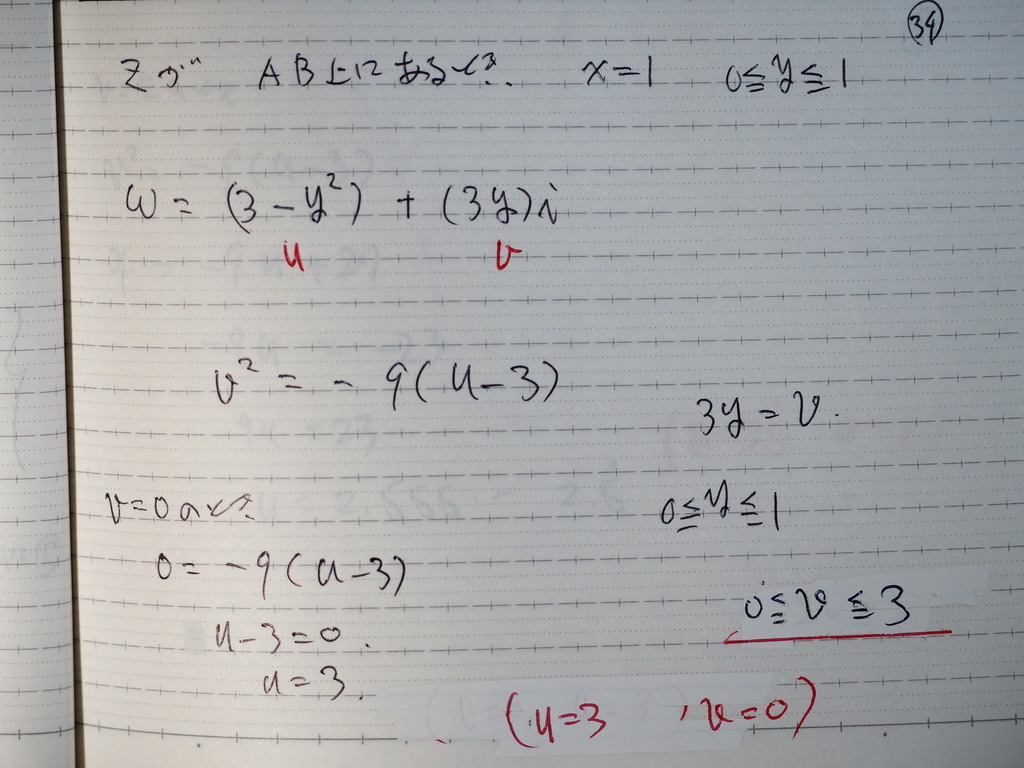 34
Zが AB上にあるとき. x=1 0≦y≦1
ω = (3-y²) + (3y)i
u v
v² = - 9(u-3)
3y = v.
v=0のとき
0≦y≦1
0 = -9(u-3)
0≦v≦3
u-3=0.
u=3.
(u=3 , v=0)